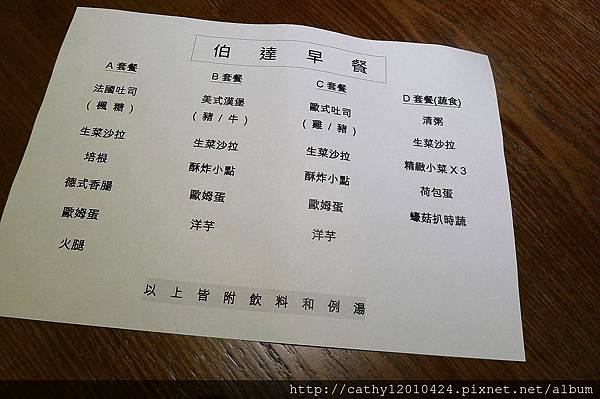 伯達早餐
A套餐
法國吐司
(楓糖)
生菜沙拉
培根
德式香腸
歐姆蛋
火腿
B套餐
美式漢堡
(豬/牛)
生菜沙拉
酥炸小點
歐姆蛋
洋芋
C套餐
歐式吐司
(雞/豬)
生菜沙拉
酥炸小點
歐姆蛋
洋芋
D套餐(蔬食)
清粥
生菜沙拉
精緻小菜X3
荷包蛋
蠔菇扒時蔬
以上皆附飲料和例湯
http://cathy12010424.pixnet.net/album